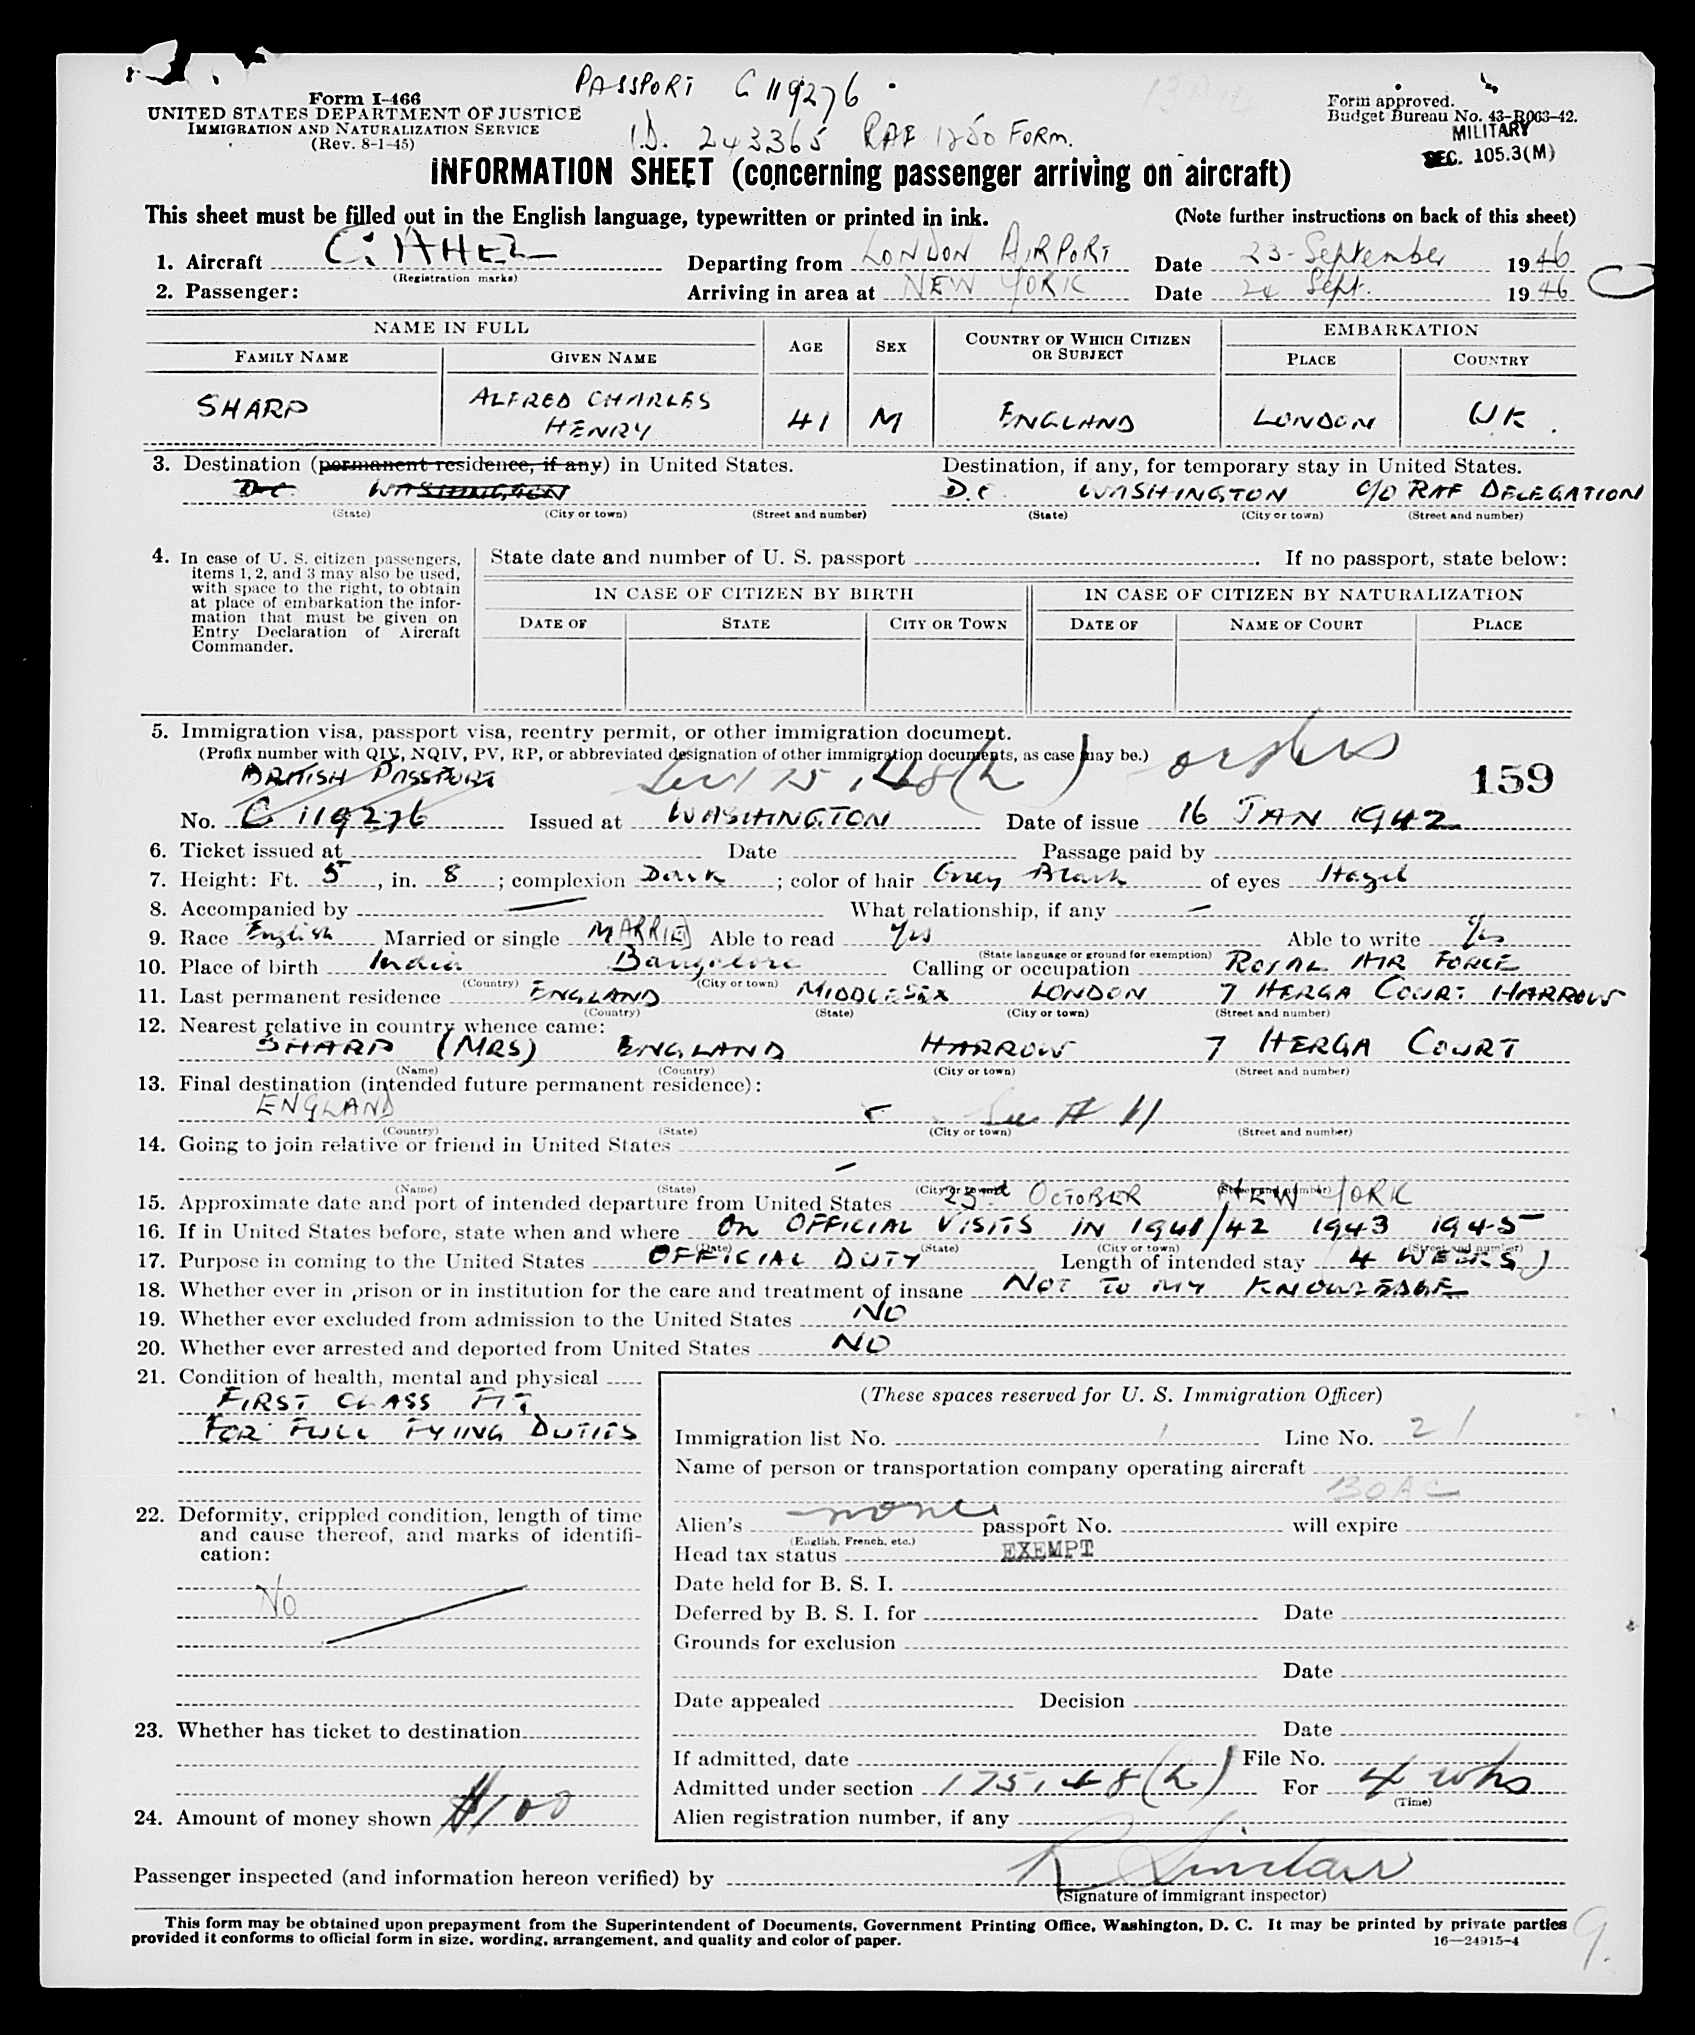 PASSPORT C 119276
Form I-466
UNITED STATES DEPARTMENT OF JUSTICE
IMMIGRATION AND NATURALIZATION SERVICE
(Rev. 8-1-45)
I.D. 243365 RAF 1250 FORM.
Form approved.
Budget Bureau No. 43-R063-42.
MILITARY
SEC. 105.3(M)
INFORMATION SHEET (concerning passenger arriving on aircraft)
This sheet must be filled out in the English language, typewritten or printed in ink. (Note further instructions on back of this sheet)
1. Aircraft G. AHEL Departing from LONDON AIRPORT Date 23-September 1946
(Registration marks)
2. Passenger: Arriving in area at NEW YORK Date 24 Sept. 1946
NAME IN FULL
FAMILY NAME GIVEN NAME AGE SEX COUNTRY OF WHICH CITIZEN OR SUBJECT EMBARKATION PLACE COUNTRY
SHARP ALFRED CHARLES HENRY 41 M ENGLAND LONDON UK.
3. Destination (permanent residence, if any) in United States. Destination, if any, for temporary stay in United States.
D.C. WASHINGTON D.C. WASHINGTON C/O RAF DELEGATION
(State) (City or town) (Street and number) (State) (City or town) (Street and number)
4. In case of U. S. citizen passengers,
items 1, 2, and 3 may also be used,
with space to the right, to obtain
at place of embarkation the infor-
mation that must be given on
Entry Declaration of Aircraft
Commander.
State date and number of U. S. passport . If no passport, state below:
IN CASE OF CITIZEN BY BIRTH IN CASE OF CITIZEN BY NATURALIZATION
DATE OF STATE CITY OR TOWN DATE OF NAME OF COURT PLACE
5. Immigration visa, passport visa, reentry permit, or other immigration document.
(Prefix number with QIV, NQIV, PV, RP, or abbreviated designation of other immigration documents, as case may be.)
BRITISH PASSPORT 175.48(h) orders 159
No. C 119276 Issued at WASHINGTON Date of issue 16 JAN 1942
6. Ticket issued at Date Passage paid by
7. Height: Ft. 5, in. 8; complexion Dark; color of hair Grey Black of eyes Hazel
8. Accompanied by — What relationship, if any —
9. Race English Married or single MARRIED Able to read Yes Able to write Yes
(State language or ground for exemption)
10. Place of birth India Bangalore Calling or occupation ROYAL AIR FORCE
(Country) (City or town)
11. Last permanent residence ENGLAND MIDDLESEX LONDON 7 HERGA COURT HARROW
(Country) (State) (City or town) (Street and number)
12. Nearest relative in country whence came:
SHARP (MRS) ENGLAND HARROW 7 HERGA COURT
(Name) (Country) (City or town) (Street and number)
13. Final destination (intended future permanent residence):
ENGLAND See # 11
(Country) (State) (City or town) (Street and number)
14. Going to join relative or friend in United States
—
(Name) (State) (City or town) (Street and number)
15. Approximate date and port of intended departure from United States 23rd OCTOBER NEW YORK
16. If in United States before, state when and where ON OFFICIAL VISITS IN 1941/42 1943 1945
(Date) (State) (City or town) (Street and number)
17. Purpose in coming to the United States OFFICIAL DUTY Length of intended stay 4 WEEKS
18. Whether ever in prison or in institution for the care and treatment of insane NOT TO MY KNOWLEDGE
19. Whether ever excluded from admission to the United States NO
20. Whether ever arrested and deported from United States NO
21. Condition of health, mental and physical
FIRST CLASS FIT
FOR FULL FLYING DUTIES
22. Deformity, crippled condition, length of time
and cause thereof, and marks of identifi-
cation:
No
23. Whether has ticket to destination
24. Amount of money shown $100
(These spaces reserved for U. S. Immigration Officer)
Immigration list No. 1 Line No. 21
Name of person or transportation company operating aircraft
BOAC
Alien's none passport No. will expire
(English, French, etc.)
Head tax status EXEMPT
Date held for B. S. I.
Deferred by B. S. I. for Date
Grounds for exclusion
Date
Date appealed Decision
Date
If admitted, date File No.
Admitted under section 175.48(h) For 4 wks
(Time)
Alien registration number, if any
Passenger inspected (and information hereon verified) by R Sinclair
(Signature of immigrant inspector)
This form may be obtained upon prepayment from the Superintendent of Documents, Government Printing Office, Washington, D. C. It may be printed by private parties
provided it conforms to official form in size, wording, arrangement, and quality and color of paper. 16—24915-4
9.